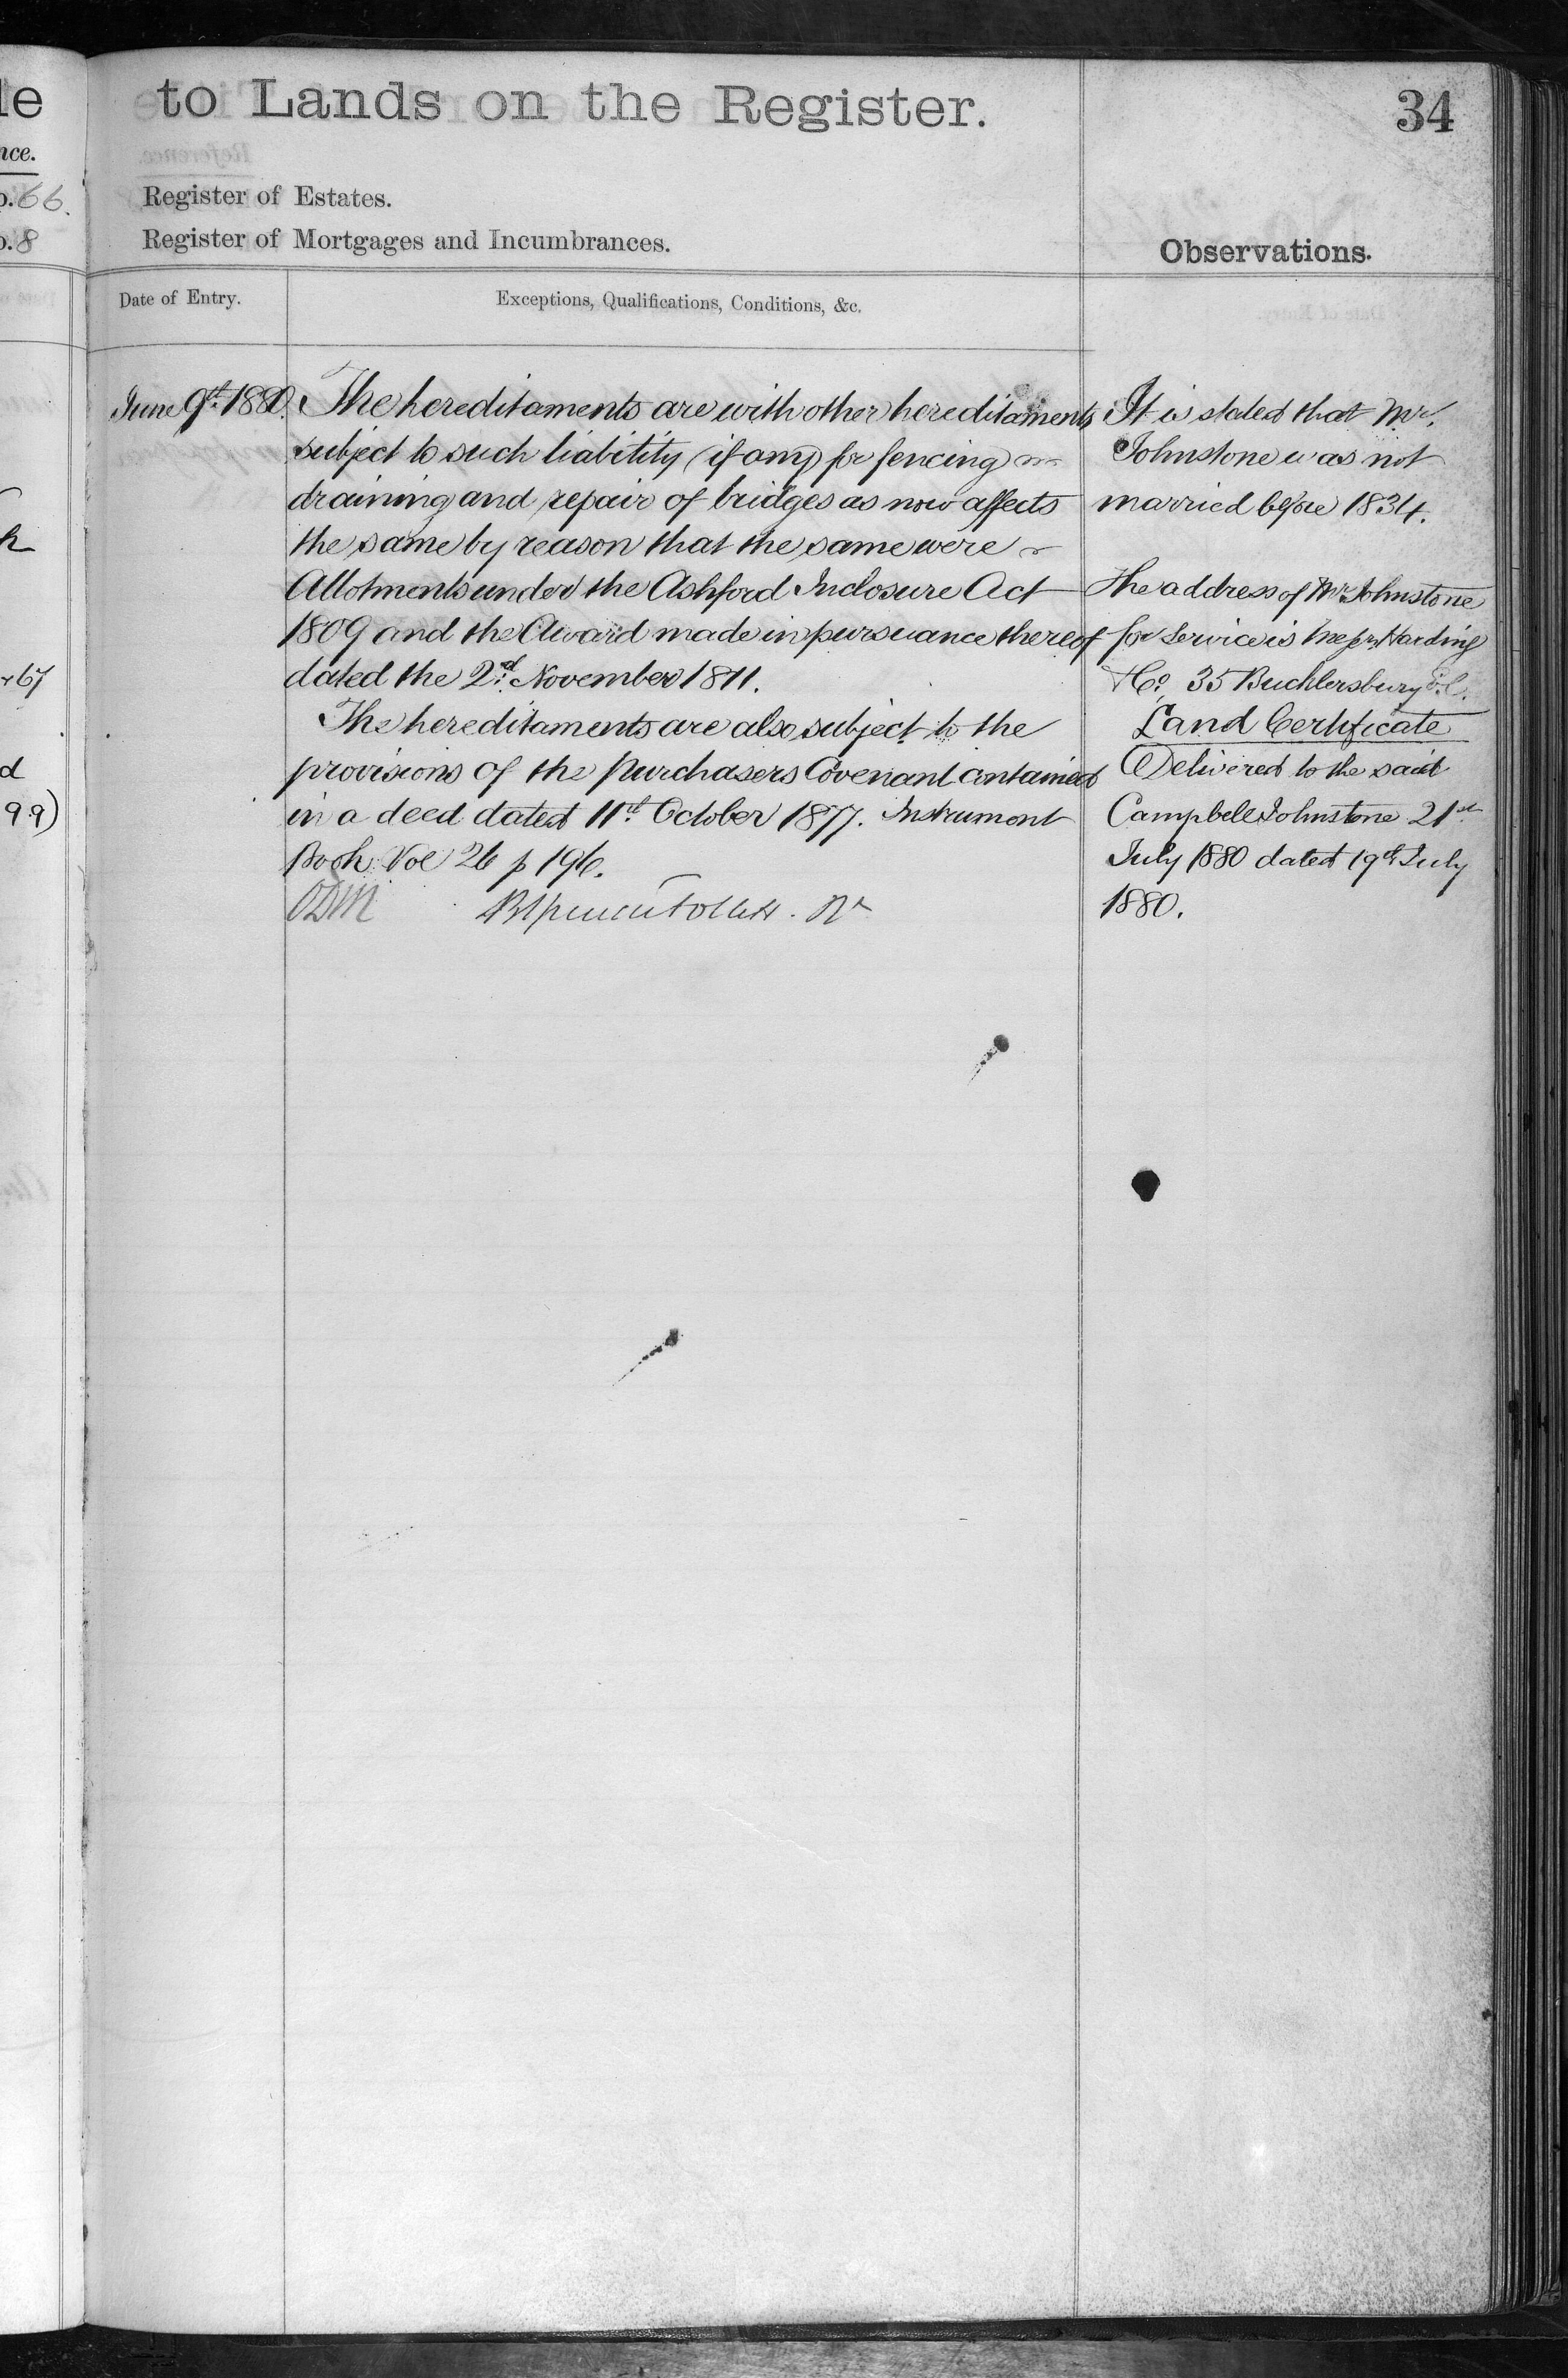 le
nce.
p. 66.
p. 8
h
67
d
99)
to Lands on the Register.
34
Register of Estates.
Register of Mortgages and Incumbrances.
Observations.
Date of Entry.
Exceptions, Qualifications, Conditions, &c.
June 9th 1880.
The hereditaments are with other hereditaments
subject to such liability (if any) for fencing
draining and repair of bridges as now affects
the same by reason that the same were
Allotments under the Ashford Inclosure Act
1809 and the Award made in pursuance thereof
dated the 2nd November 1811.
The hereditaments are also subject to the
provisions of the Purchasers Covenant contained
in a deed dated 11th October 1877. Instrument
Book Vol 26 p 196.
It is stated that Mr.
Johnstone was not
married before 1834.
The address of Mr Johnstone
for Service is Messrs Harding
& Co 35 Bucklersbury E.C.
Land Certificate
Delivered to the said
Campbell Johnstone 21st
July 1880 dated 19th July
1880.